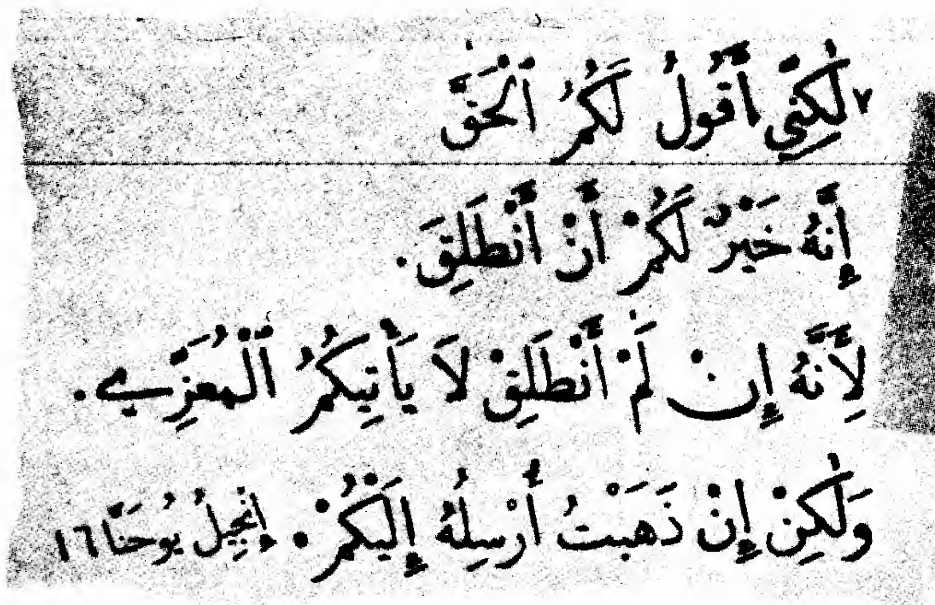 ٧لٰكِنِّي أَقُولُ لَكُمُ ٱلْحَقَّ
إِنَّهُ خَيْرٌ لَكُمْ أَنْ أَنْطَلِقَ.
لِأَنَّهُ إِنْ لَمْ أَنْطَلِقْ لَا يَأْتِيكُمُ ٱلْمُعَزِّي.
وَلٰكِنْ إِنْ ذَهَبْتُ أُرْسِلُهُ إِلَيْكُمْ. إِنْجِيلُ يُوحَنَّا ١٦